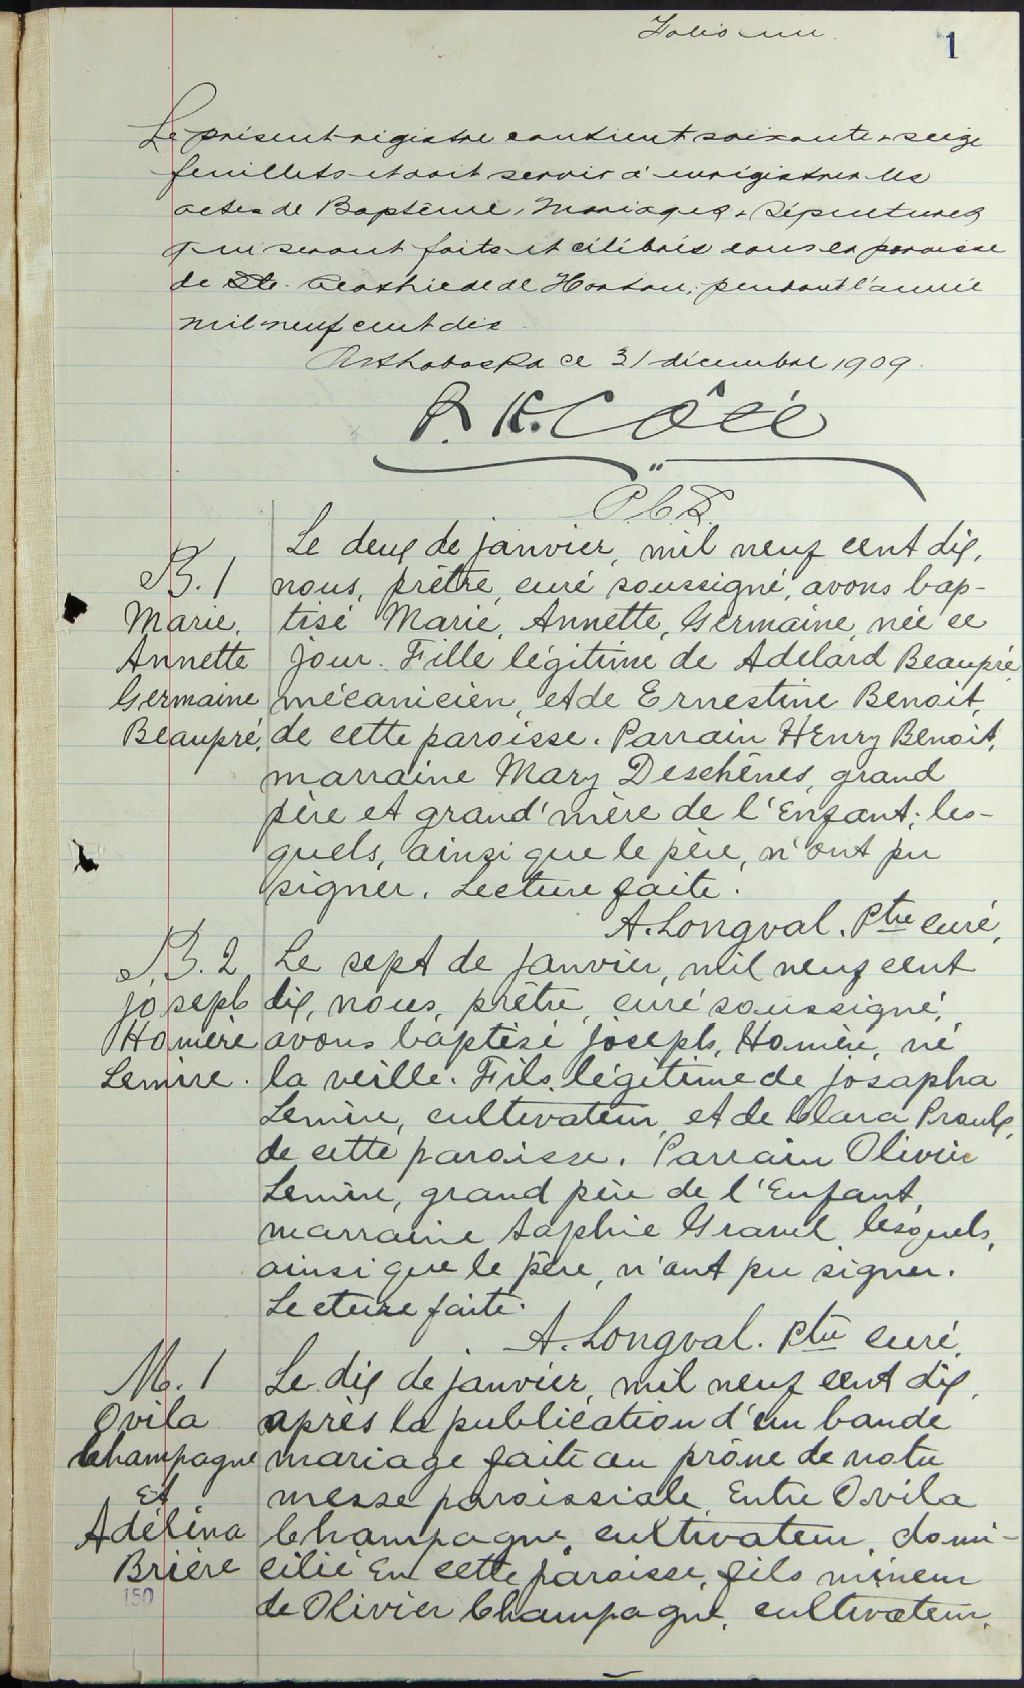 Folio un
1
Le présent registre contient soixante & seize
feuillets et doit servir à enrégistrer les
actes de Baptême, Mariages & Sépultures
qui seront faits et célébrés dans la paroisse
de Ste. Clothilde de Horton, pendant l'année
mil neuf cent dix
Arthabaska ce 31 décembre 1909.
P. K. Côté
P.C.S.
B. 1
Marie,
Annette
Germaine
Beaupré,
Le deux de janvier, mil neuf cent dix,
nous, prêtre, curé soussigné, avons bap-
tisé Marie, Annette, Germaine, née ce
jour. Fille légitime de Adélard Beaupré,
mécanicien, et de Ernestine Benoit,
de cette paroisse. Parrain Henry Benoit,
marraine Mary Deschênes, grand
père et grand'mère de l'Enfant; les-
quels, ainsi que le père, n'ont pu
signer. Lecture faite.
A. Longval. Ptre curé,
B. 2
joseph
Homère
Lemire.
Le sept de janvier, mil neuf cent
dix, nous, prêtre, curé soussigné,
avons baptisé joseph, Homère, né
la veille. Fils légitime de josapha
Lemire, cultivateur, et de Clara Proulx,
de cette paroisse. Parrain Olivier
Lemire, grand père de l'Enfant,
marraine Sophie Gravel lesquels,
ainsi que le père, n'ont pu signer.
Lecture faite.
A. Longval. Ptre curé,
M. 1
Ovila
Champagne
Et
Adélina
Brière
150
Le dix de janvier, mil neuf cent dix,
après la publication d'un bande
mariage faite au prône de notre
messe paroissiale, Entre Ovila
Champagne, cultivateur, domi-
cilié En cette paroisse, fils mineur
de Olivier Champagne, cultivateur,